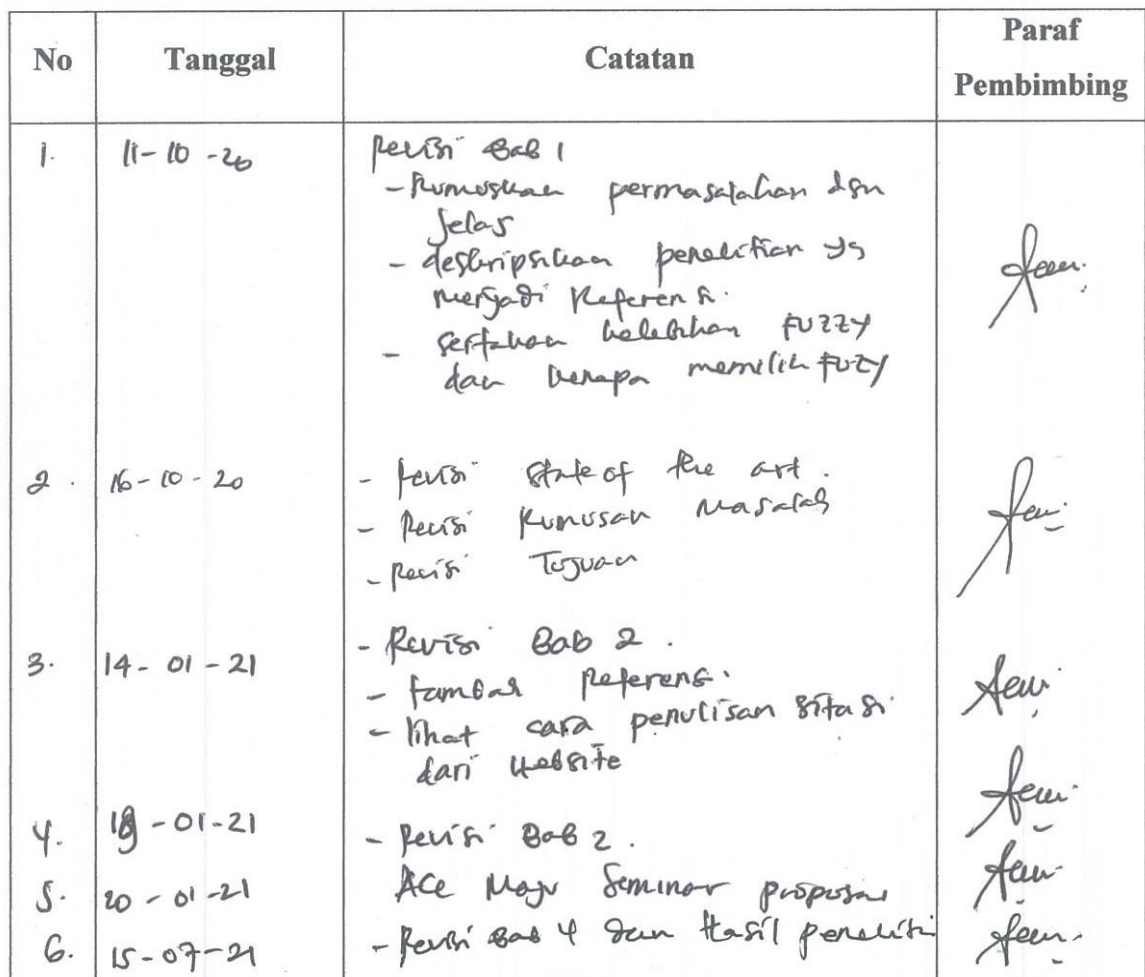 No Tanggal Catatan Paraf Pembimbing
1. 11-10-20 Revisi Bab 1
- Rumuskan permasalahan dgn
jelas
- deskripsikan penelitian yg
menjadi Referensi.
- sertakan kelebihan FUZZY
dan kenapa memilih fuzy
2. 16-10-20 - Revisi State of the art.
- Revisi Rumusan Masalah
- Revisi Tujuan
3. 14-01-21 - Revisi Bab 2.
- tambah Referensi.
- lihat cara penulisan sitasi
dari website
4. 18-01-21 - Revisi Bab 2.
5. 20-01-21 Acc Maju Seminar proposal
6. 15-07-21 - Revisi Bab 4 dan Hasil peneliti